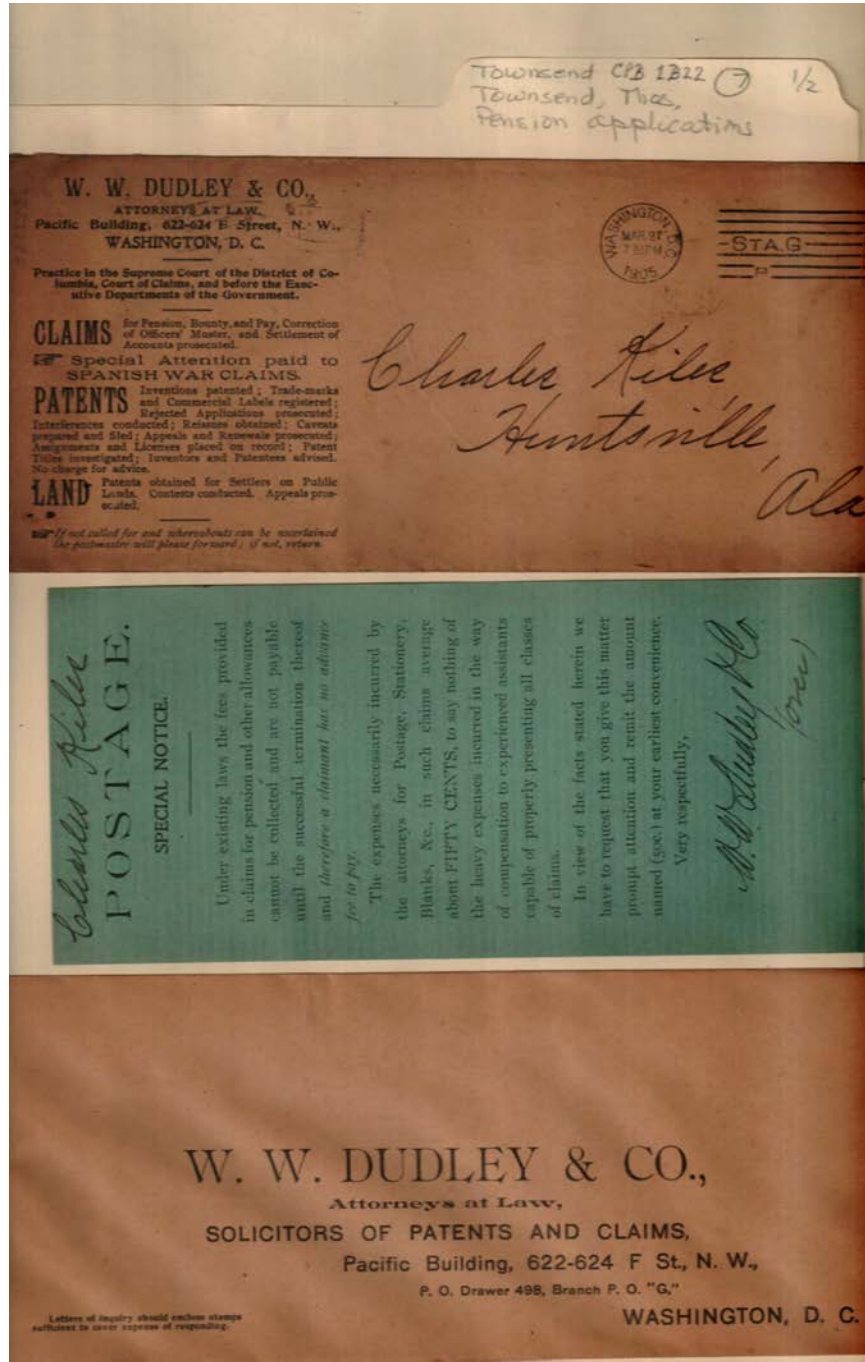 Townsend CPB 1B22 7 1/2
Townsend, Thos,
Pension applications
W. W. DUDLEY & CO.,
ATTORNEYS AT LAW,
Pacific Building, 622-624 F Street, N. W.,
WASHINGTON, D. C.
Practice in the Supreme Court of the District of Co-
lumbia, Court of Claims, and before the Exec-
utive Departments of the Government.
CLAIMS for Pension, Bounty, and Pay, Correction
of Officers' Muster, and Settlement of
Accounts prosecuted.
☞ Special Attention paid to
SPANISH WAR CLAIMS.
PATENTS Inventions patented; Trade-marks
and Commercial Labels registered;
Rejected Applications prosecuted;
Interferences conducted; Reissues obtained; Caveats
prepared and filed; Appeals and Renewals prosecuted;
Assignments and Licenses placed on record; Patent
Titles investigated; Inventors and Patentees advised.
No charge for advice.
LAND Patents obtained for Settlers on Public
Lands. Contests conducted. Appeals pros-
ecuted.
☞ If not called for and whereabouts can be ascertained
the postmaster will please forward; if not, return.
WASHINGTON, D.C.
MAR 27
7 PM
1905
STA. G
Charles Kiles,
Huntsville,
Ala
Charles Kiles
POSTAGE.
SPECIAL NOTICE.
Under existing laws the fees provided
in claims for pension and other allowances
cannot be collected and are not payable
until the successful termination thereof
and therefore a claimant has no advance
fee to pay.
The expenses necessarily incurred by
the attorneys for Postage, Stationery,
Blanks, &c., in such claims average
about FIFTY CENTS, to say nothing of
the heavy expenses incurred in the way
of compensation to experienced assistants
capable of properly presenting all classes
of claims.
In view of the facts stated herein we
have to request that you give this matter
prompt attention and remit the amount
named (50c.) at your earliest convenience.
Very respectfully,
W. W. Dudley & Co.
W. W. DUDLEY & CO.,
Attorneys at Law,
SOLICITORS OF PATENTS AND CLAIMS,
Pacific Building, 622-624 F St., N. W.,
P. O. Drawer 498, Branch P. O. "G,"
WASHINGTON, D. C.
Letters of inquiry should enclose stamps
sufficient to cover expense of responding.